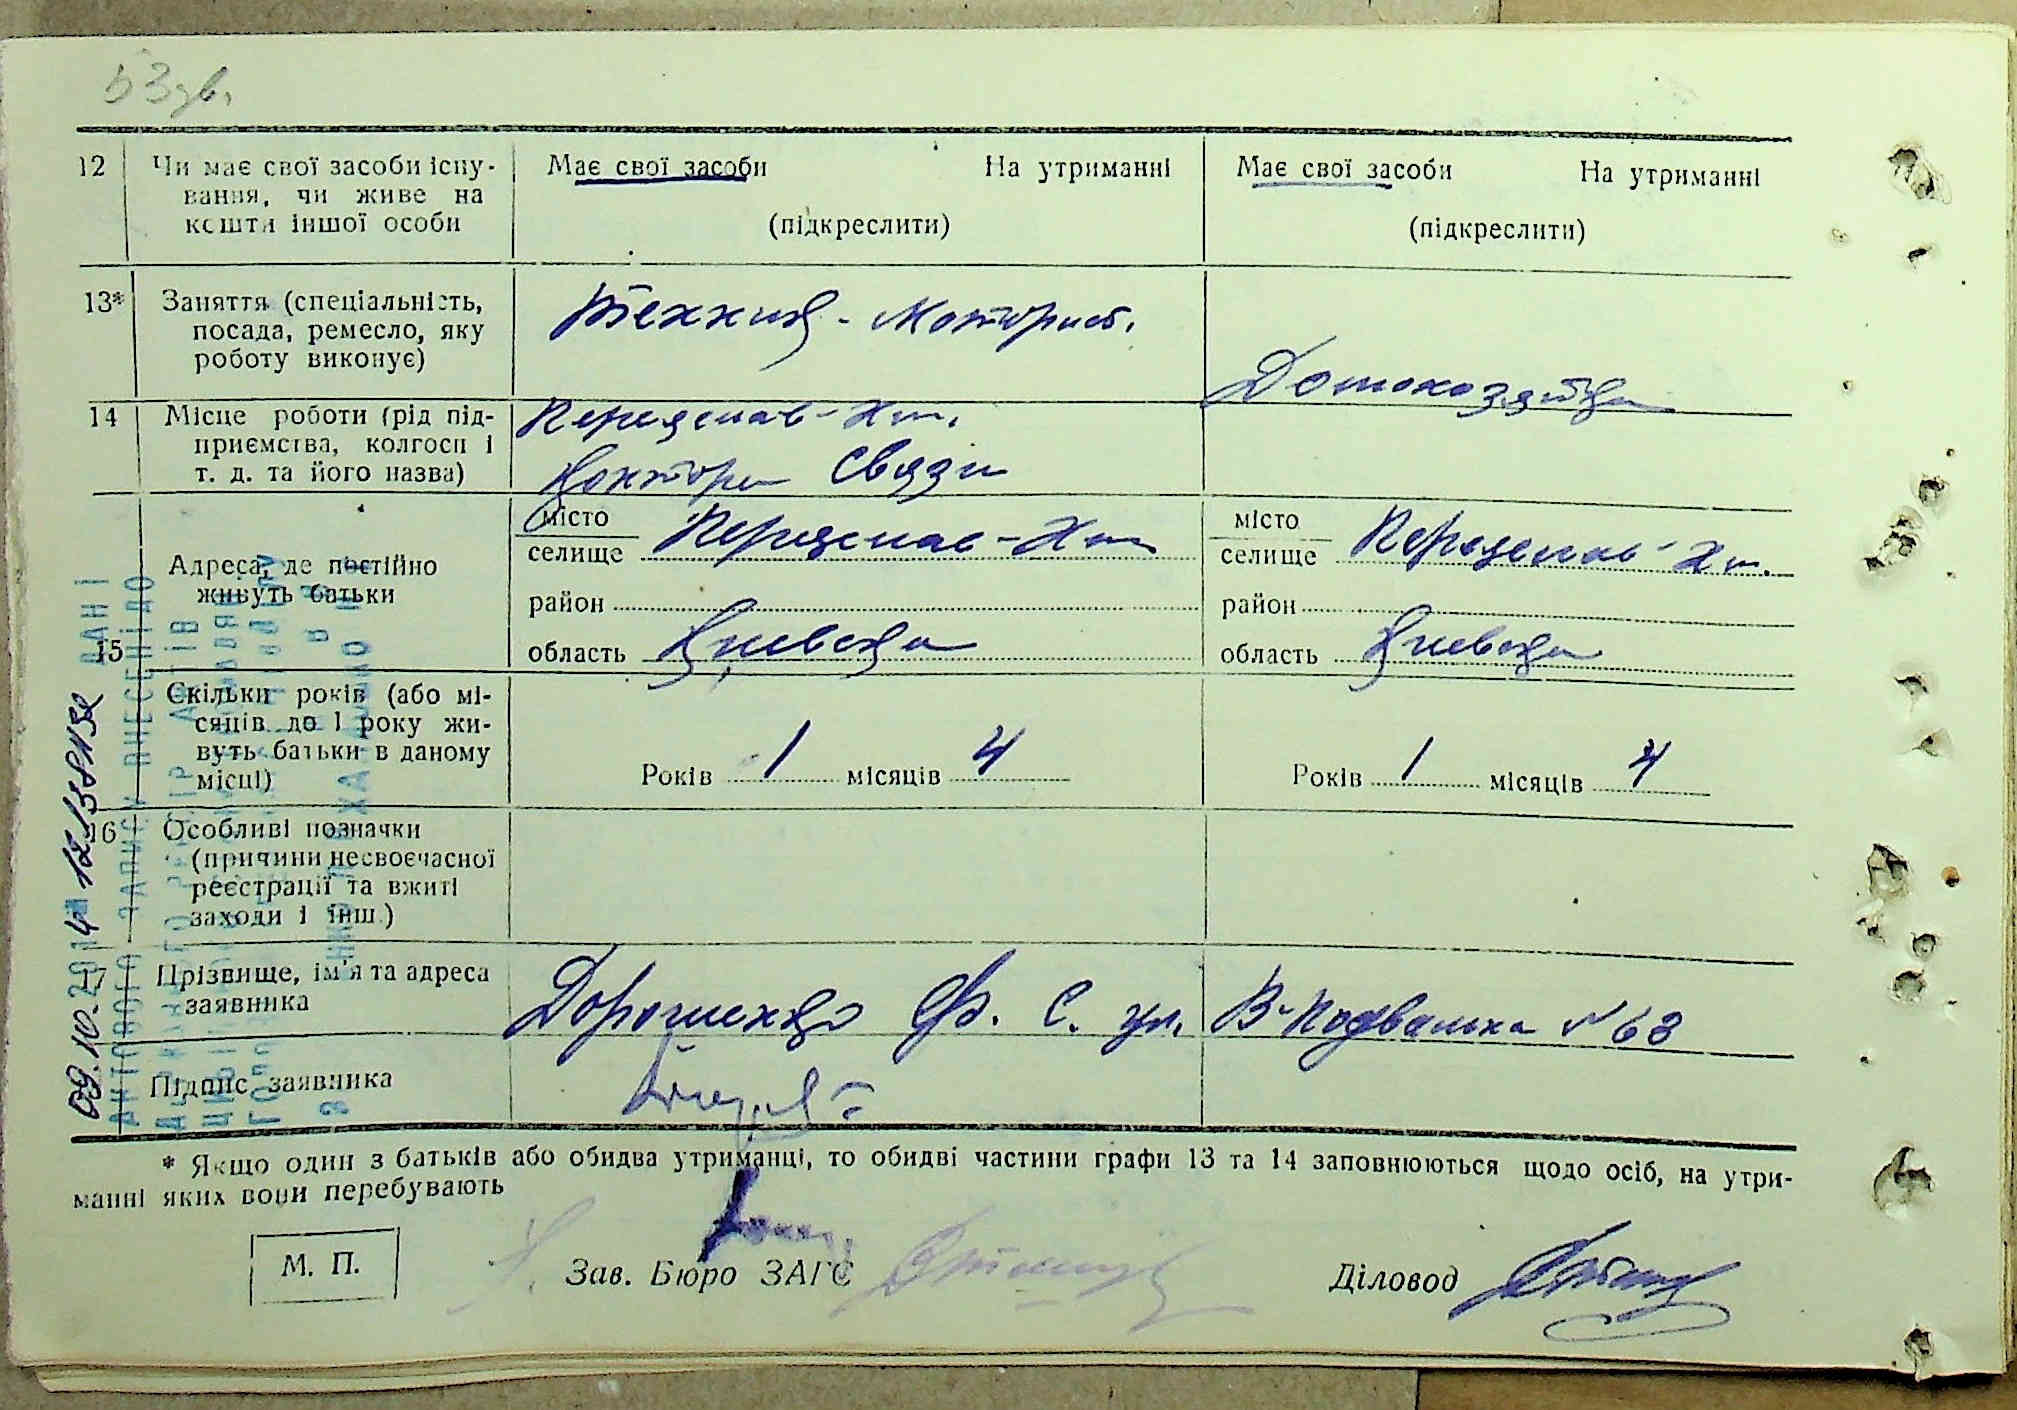 53 зв.
12 Чи має свої засоби існу-
вання, чи живе на
кошти іншої особи
Має свої засоби На утриманні
(підкреслити)
Має свої засоби На утриманні
(підкреслити)
13* Заняття (спеціальність,
посада, ремесло, яку
роботу виконує)
Техник - моторист.
Домохозяйка
14 Місце роботи (рід під-
приємства, колгосп і
т. д. та його назва)
Переяслав-Хм.
Контора Связи
15 Адреса, де постійно
живуть батьки
місто
селище Переяслав-Хм
район
область Киевска
місто
селище Переяслав-Хм.
район
область Киевска
Скільки років (або мі-
сяців до 1 року жи-
вуть батьки в даному
місці)
Років 1 місяців 4
Років 1 місяців 4
16 Особливі позначки
(причини несвоєчасної
реєстрації та вжиті
заходи і інш.)
17 Прізвище, ім'я та адреса
заявника
Дорошенко Ф. С. ул. В-Подвальна №63
Підпис заявника
* Якщо один з батьків або обидва утриманці, то обидві частини графи 13 та 14 заповнюються щодо осіб, на утри-
манні яких вони перебувають
М. П.
Зав. Бюро ЗАГС
Діловод
ДАНІ
АКТОВОГО ЗАПИСУ ВНЕСЕНІ ДО
09.10.2014